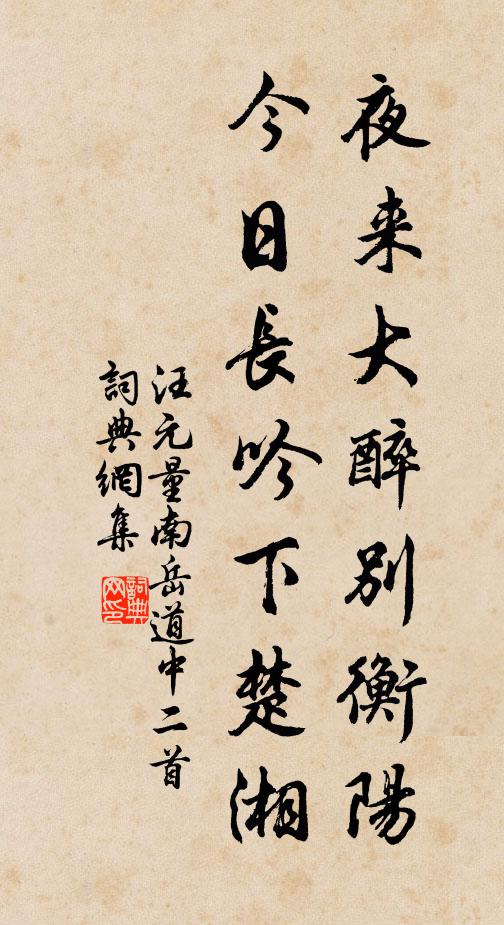 夜来大醉别衡陽
今日長吟下楚湘
汪元量南岳道中二首
詞典網集
詞典
网印